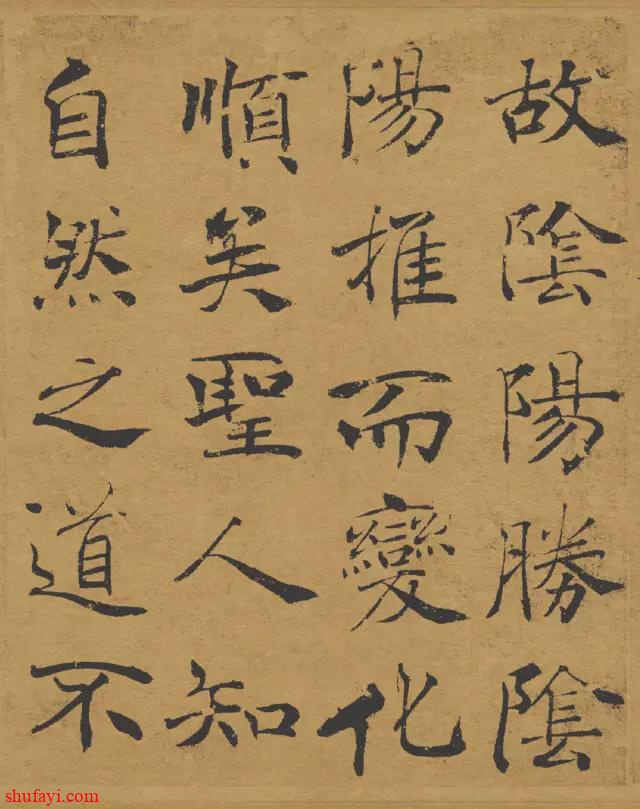 故陰陽勝陰
陽推而變化
順矣聖人知
自然之道不
shufayi.com